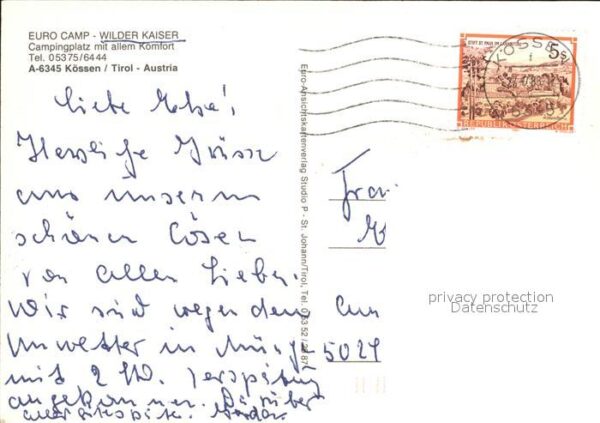 EURO CAMP - WILDER KAISER
Campingplatz mit allem Komfort
Tel. 05375/6444
A-6345 Kössen / Tirol - Austria
Liebe
Herzliche Grüsse
aus unserem
schönen Cösen
von allen Lieben.
Wir sind wegen dem
Unwetter in
mit 2 Std. Verspätung
angekommen. Darüber
Euro-Ansichtskartenverlag Studio P - St. Johann/Tirol, Tel. 0 53 52/
STIFT ST. PAUL IM LAVANTTAL
5s
REPUBLIK ÖSTERREICH
KÖSSEN
Frau
5024
privacy protection
Datenschutz